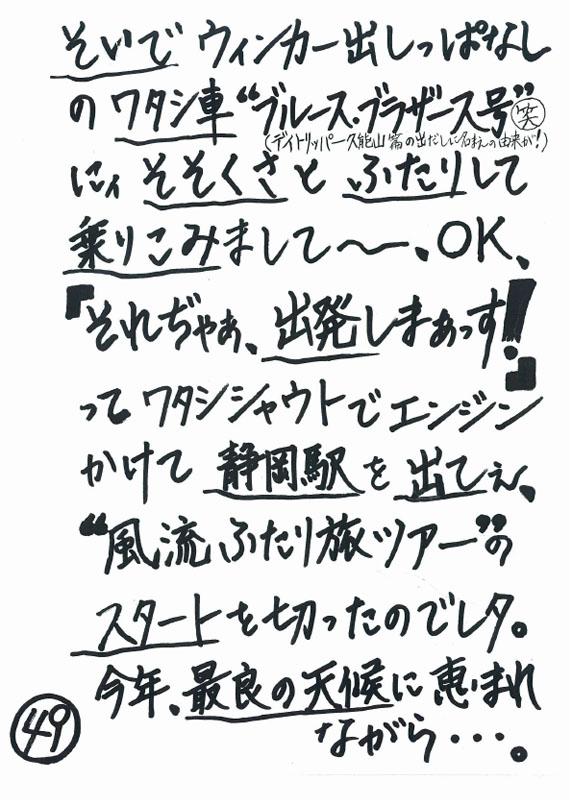 そいで ウィンカー出しっぱなし
の ワタシ車“ブルース・ブラザース号”笑
(デイトリッパース能山篇の出だしに名まえの由来が!)
にィ そそくさと ふたりして
乗りこみまして〜、OK、
『それぢゃぁ、出発しまぁっす!』
って ワタシシャウトでエンジン
かけて 静岡駅を 出てぇ、
“風流ふたり旅ツアー”の
スタートを切ったのでレタ。
今年、最良の天候に恵まれ
ながら・・・。
49